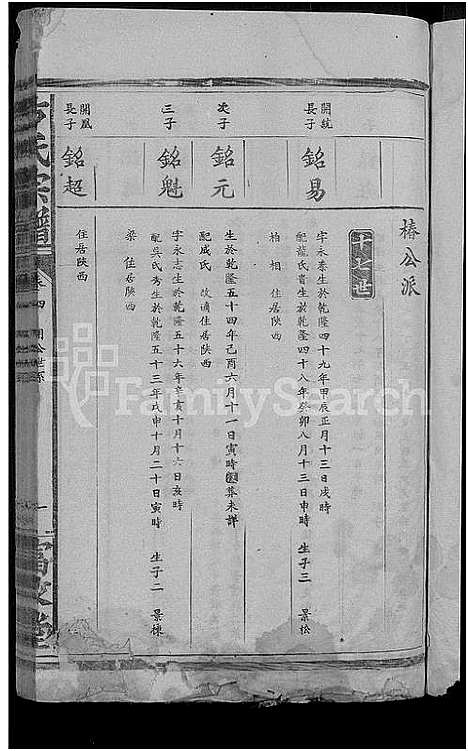 椿公派
十七世
開統
長子
銘易
字永泰生於乾隆四十九年甲辰正月十三日戌時
配龍氏貴生於乾隆四十八年癸卯八月十三日申時 生子三 景松
柏 相 住居陝西
次子
銘元
生於乾隆五十四年己酉六月十一日寅時 葬未詳
配成氏 改適住居陝西
三子
銘魁
字永志生於乾隆五十六年辛亥十月十六日亥時
配吳氏秀生於乾隆五十三年戊申十月二十日寅時 生子二 景棟
梁 住居陝西
開鳳
長子
銘超
住居陝西
氏宗譜
卷四
FamilySearch